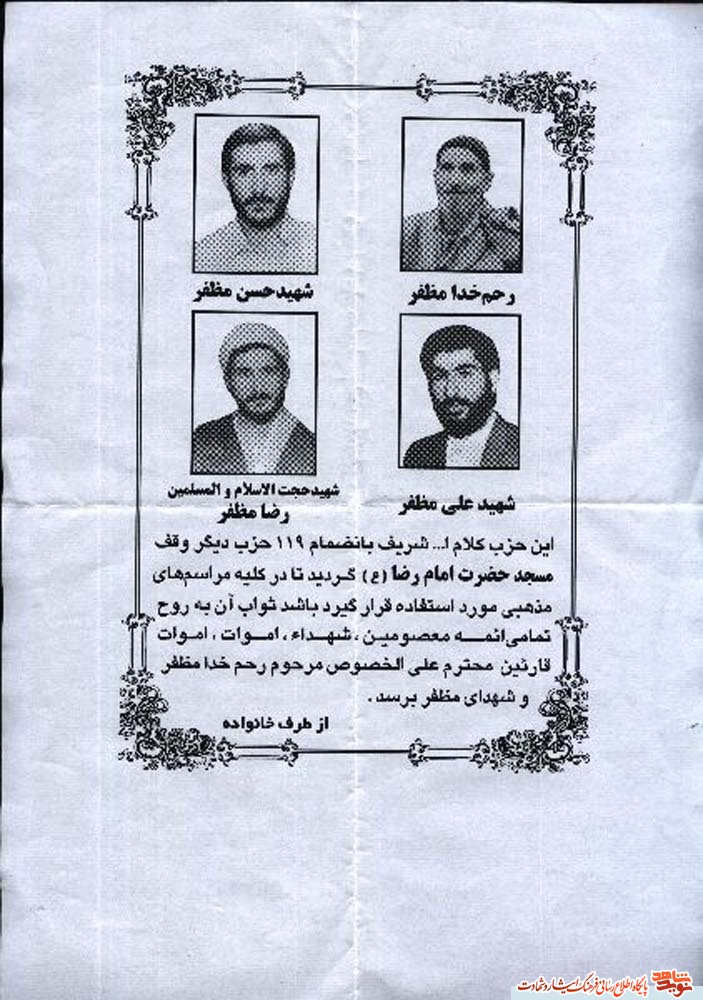 رحم‌خدا مظفر
شهید حسن مظفر
شهید علی مظفر
شهید حجت الاسلام و المسلمین
رضا مظفر
این حزب کلام ا... شریف بانضمام ۱۱۹ حزب دیگر وقف
مسجد حضرت امام رضا (ع) گردید تا در کلیه مراسم‌های
مذهبی مورد استفاده قرار گیرد باشد ثواب آن به روح
تمامی ائمه معصومین ، شهداء ، اموات ، اموات
قارئین محترم علی الخصوص مرحوم رحم خدا مظفر
و شهدای مظفر برسد .
از طرف خانواده
نوید شاهد
پایگاه اطلاع رسانی فرهنگ ایثار و شهادت